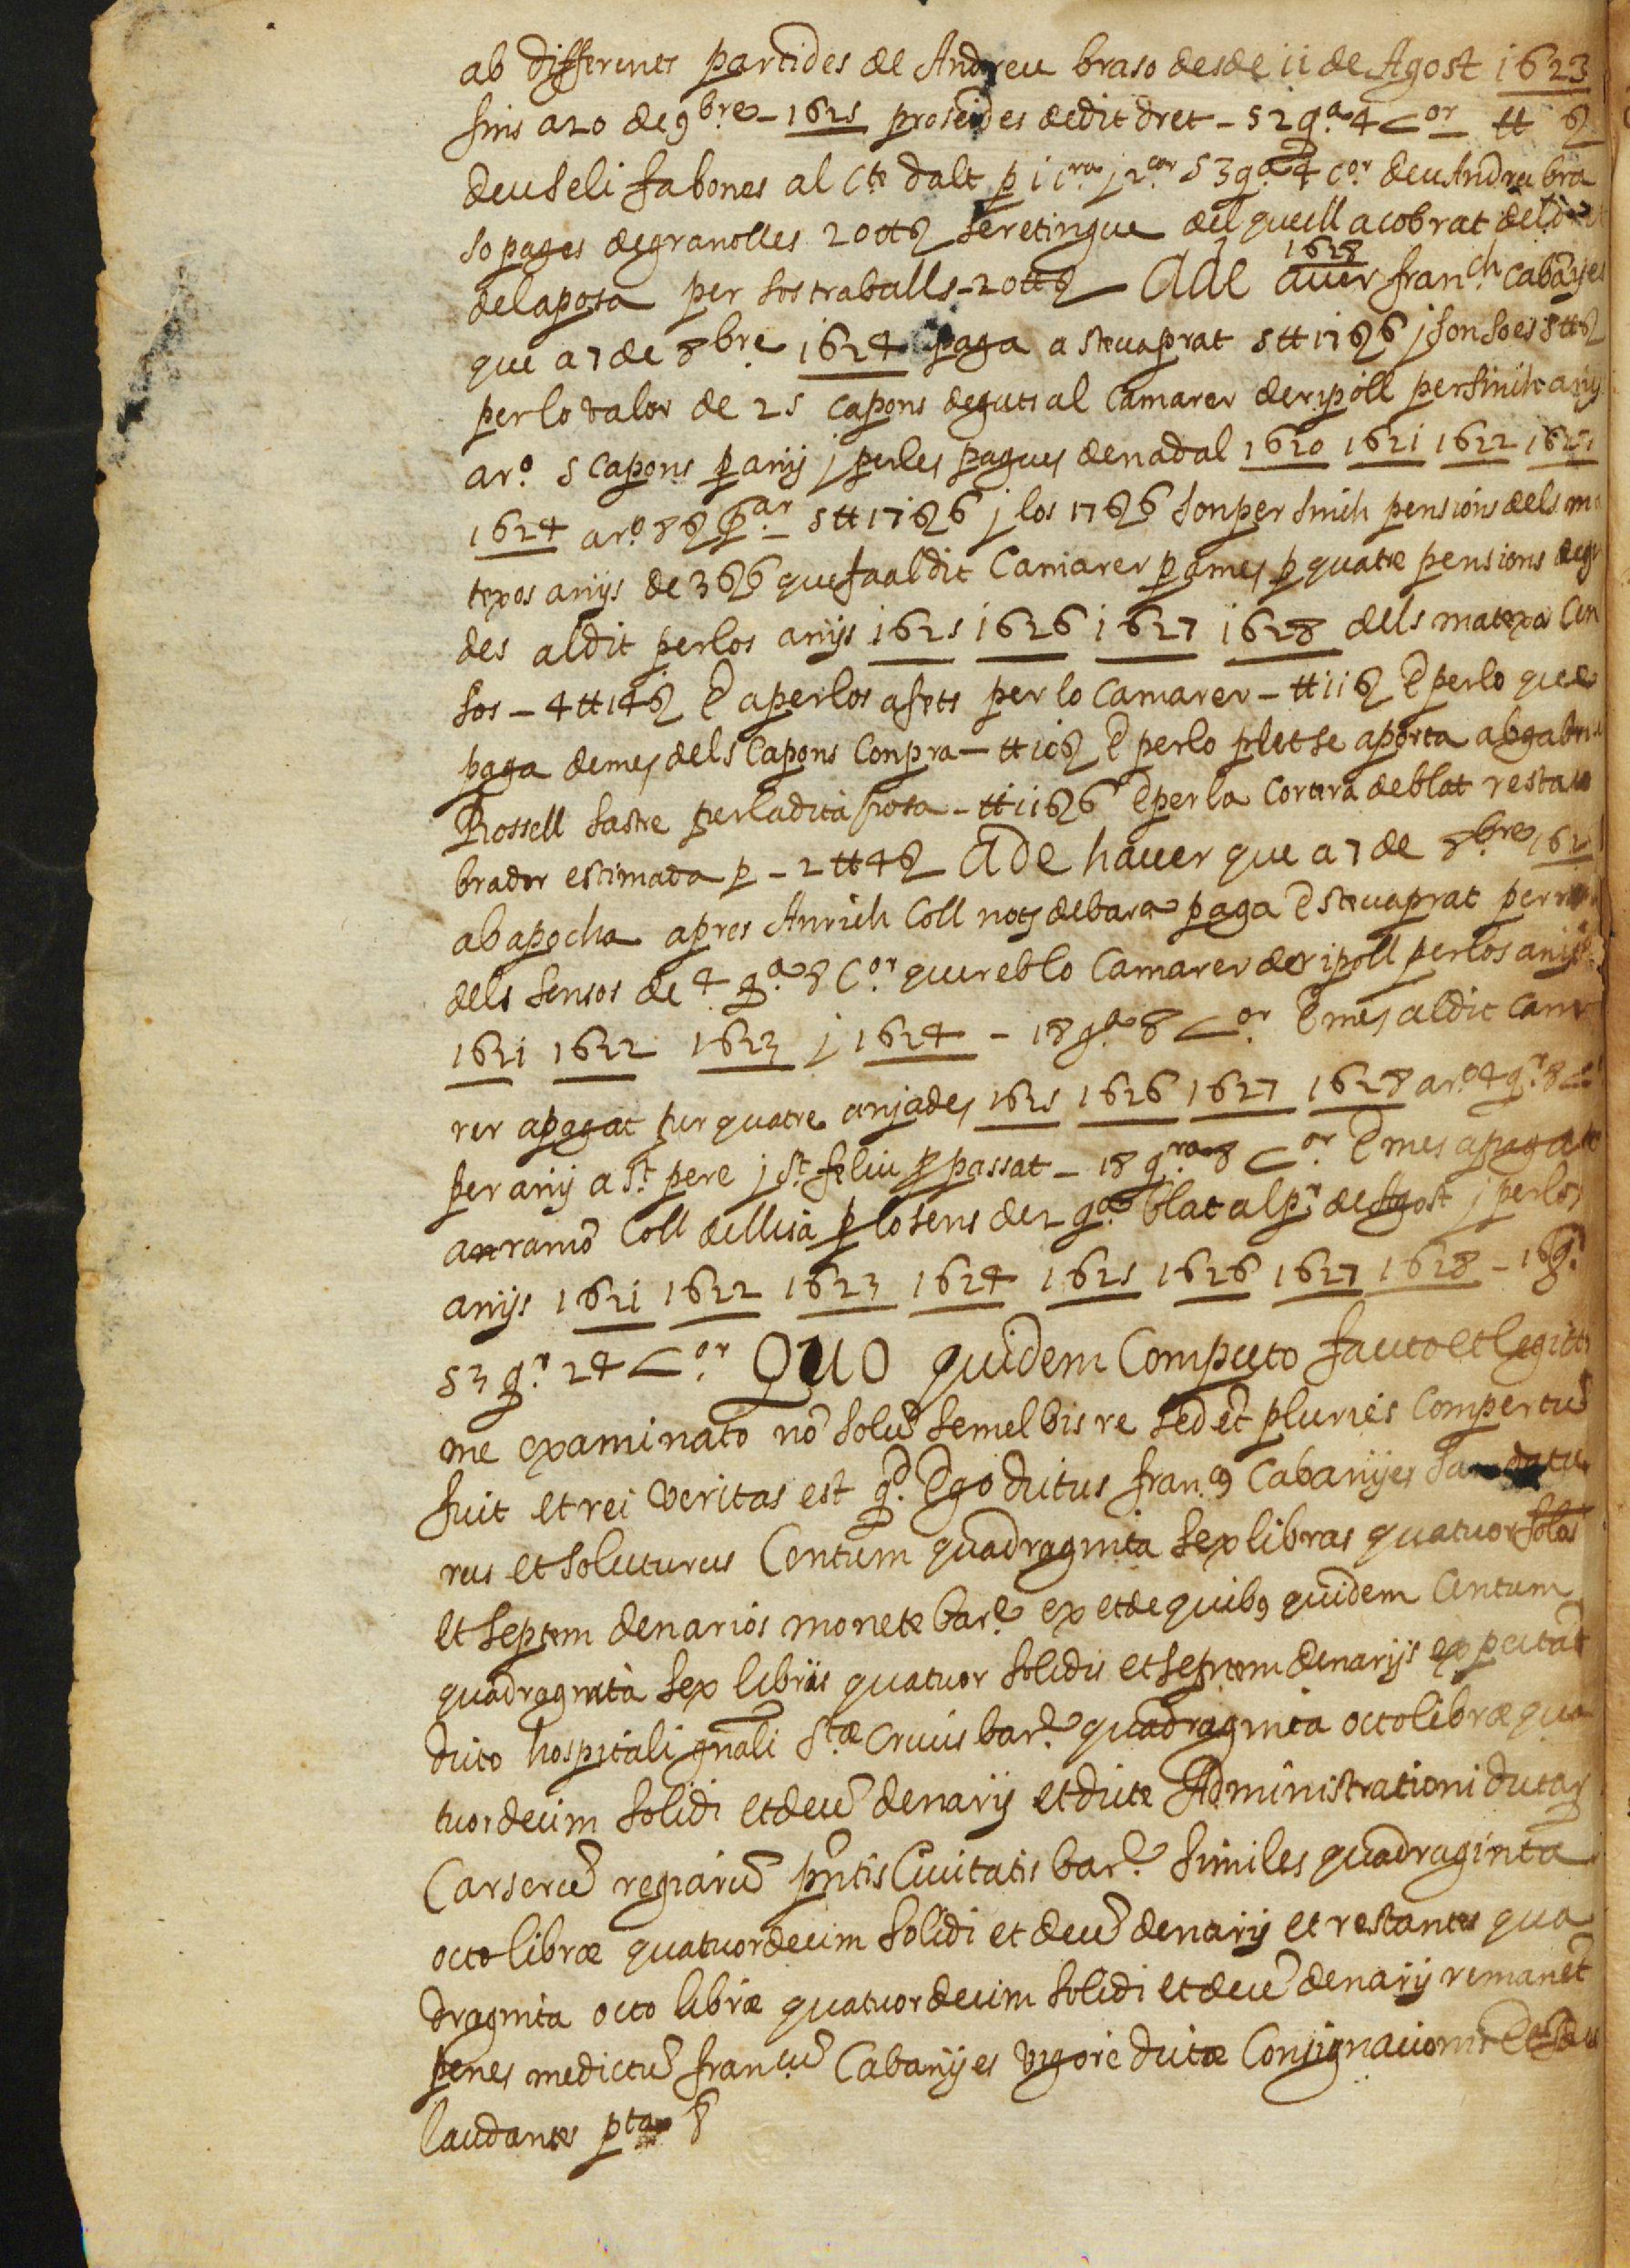 ab differents partides de Andreu braso desde ii de Agost 1623
fins a 20 de 9bre - 1625 proseides de dit dret - 52 qa 4 cor tt ß
deuseli fabones al Cte dalt p 1 cra j 2 cor 53 qa 4 cor deu Andreu bra
so pages de granolles 20 tt ß seretingue del quell a cobrat del dret
de la posa per sos traballs - 20 tt ß Ade auer 1628 franch Cabanyes
que a 7 de 8bre 1624 paga a steua prat 5 tt 17 ß 6 j son soes 5 tt ß
per lo valor de 25 capons deguts al Camarer de ripoll per sinch anys
aro 5 capons p any j per les pagues de nadal 1620 1621 1622 1623
1624 aro 8 ß par 5 tt 17 ß 6 j los 17 ß 6 son per sinch pensions dels ma
texos anys de 3 ß 6 que fa al dit Camarer p ames p quatre pensions degu
des al dit per los anys 1625 1626 1627 1628 dels matexa Cen
sos - 4 tt 14 ß E a per los afets per lo Camarer - tt 11 ß E per lo que
paga demes dels Capons Conpra - tt 10 ß E per lo plet se aporta ab gabriel
Rossell sastre per la dita posa - tt 11 ß 6 E per la Cortera de blat resta co
brador estimada p - 2 tt 4 ß Ade hauer que a 7 de 8bre 162
ab apocha apres Anrich Coll noty de bara paga Esteua prat per
dels sensos de 4 qa 8 Cor que reb lo Camarer de ripoll per los anys
1621 1622 1623 j 1624 - 18 qa 8 cor E mes al dit Cama
rer a pagat per quatre anyades 1625 1626 1627 1628 aro 4 qr 8 cor
per any a St pere j St feliu p passat - 18 qra 8 cor E mes a pagat
an ramo Coll de llisa p lo sens de 2 qa blat al pr de Agost j per los
anys 1621 1622 1623 1624 1625 1626 1627 1628 - 16 qr
53 qr 24 cor QUO quidem Computo facto et legitti
me examinato no solu semel bis re sed et pluries Compertu
fuit et rei veritas est qd Ego dictus francus Cabanyes datu
rus et soluturus Centum quadraginta sex libras quatuor solos
et septem denarios monete bare ex et de quibus quidem Centum
quadraginta sex libris quatuor solidis et septem denarijs expectat
dicto hospitali gnali Stae Crucis bare quadraginta octo librae qua
tuordecim solidi et dece denarij et dicte Administrationi dictar
Carseru regiaru pntis Ciuitatis bare similes quadraginta
octo librae quatuordecim solidi et dece denarij et restantes qua
draginta octo librae quatuordecim solidi et dece denarij remanet
penes me dictu francu Cabanyes vigore dictae Consignacionis
laudantes pta &